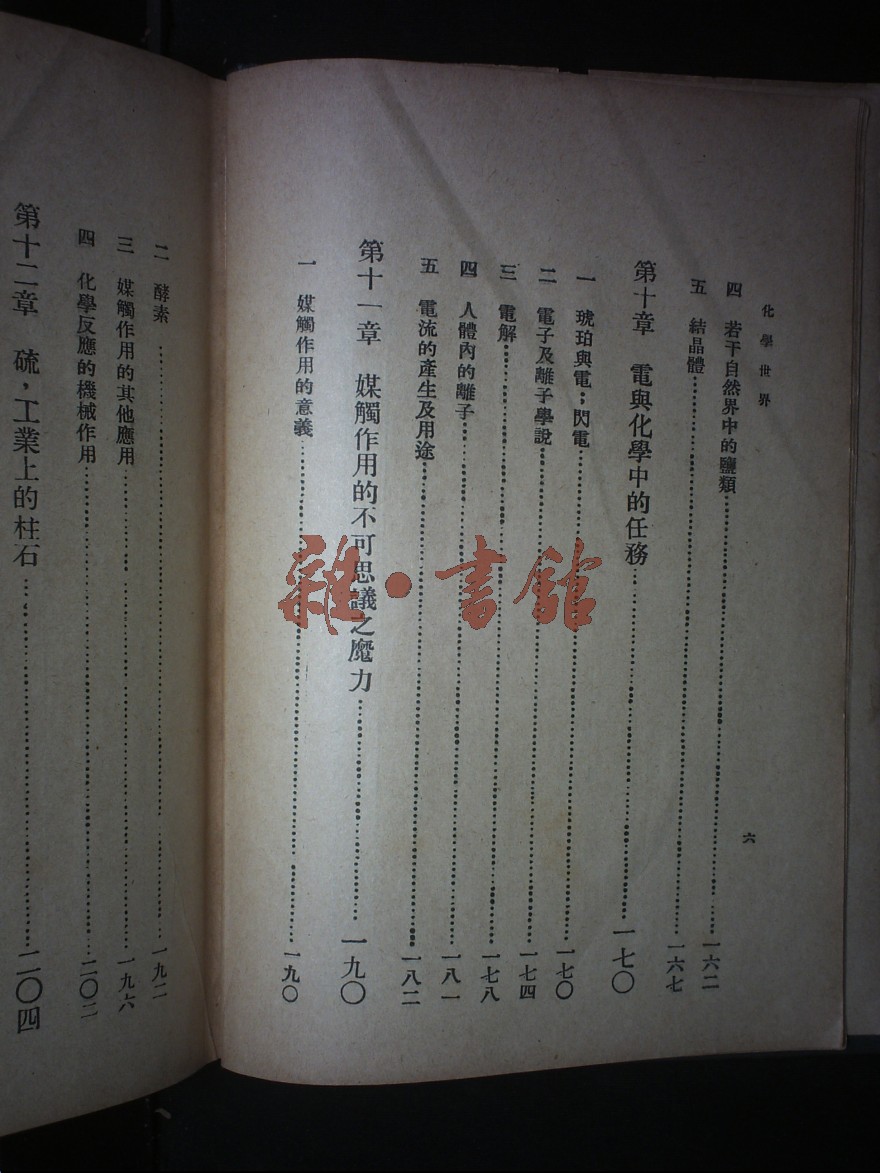 化學世界
六
四　若干自然界中的鹽類……一六二
五　結晶體……一六七
第十章　電與化學中的任務……一七〇
一　琥珀與電；閃電……一七〇
二　電子及離子學說……一七四
三　電解……一七八
四　人體內的離子……一八一
五　電流的產生及用途……一八二
第十一章　媒觸作用的不可思議之魔力……一九〇
一　媒觸作用的意義……一九〇
二　酵素……一九二
三　媒觸作用的其他應用……一九六
四　化學反應的機械作用……二〇二
第十二章　硫，工業上的柱石……二〇四
雜·書館